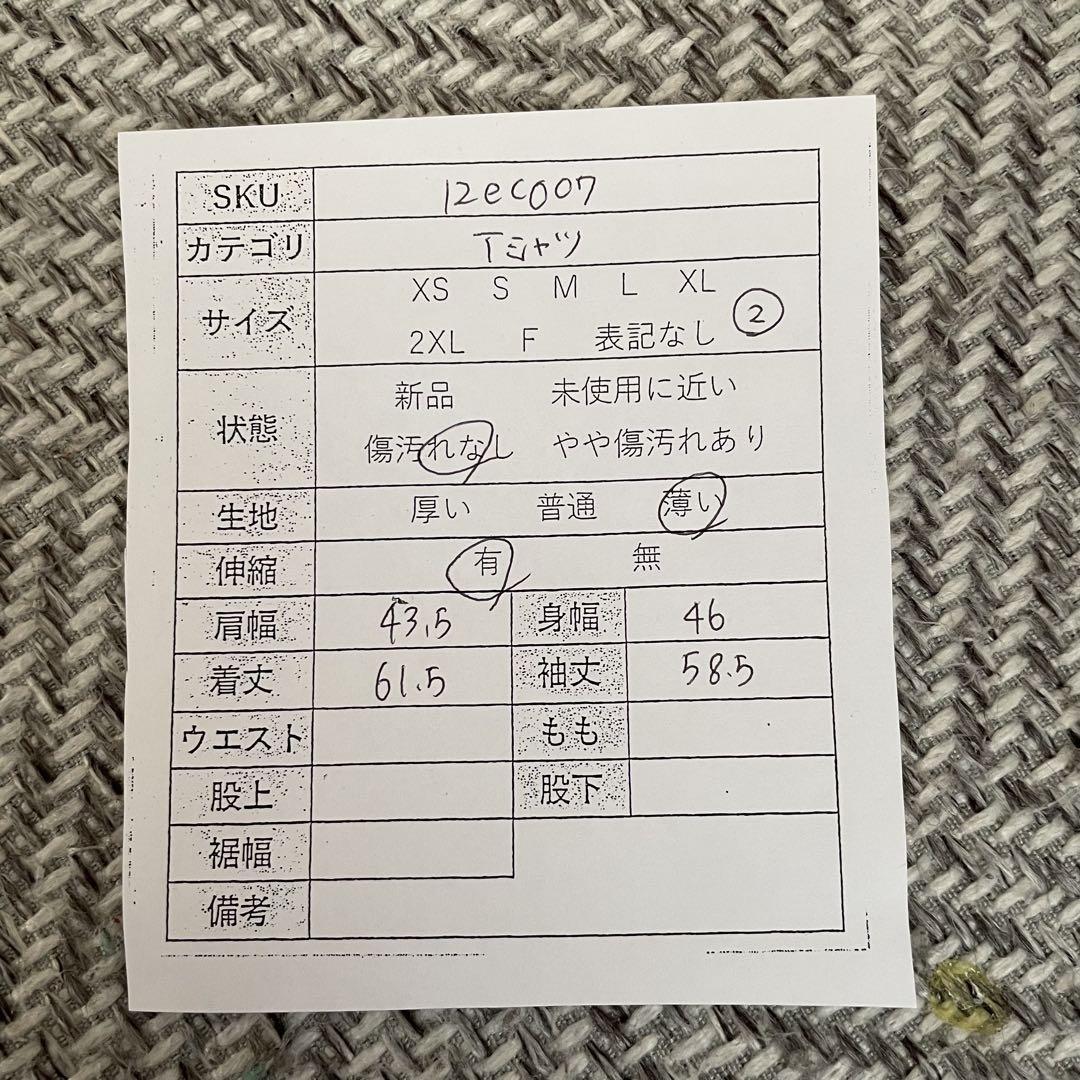 SKU 12ec007
カテゴリ Tシャツ
XS S M L XL
サイズ ②
2XL F 表記なし
新品 未使用に近い
状態
傷汚れなし やや傷汚れあり
生地 厚い 普通 薄い
伸縮 有 無
肩幅 43.5 身幅 46
着丈 61.5 袖丈 58.5
ウエスト もも
股上 股下
裾幅
備考